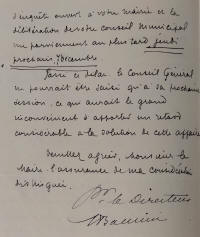 enquête ouvert à votre mairie et la
délibération de votre Conseil Municipal
me parviennent au plus tard, jeudi
prochain, 7 décembre
Passé ce délai, le Conseil Général
ne pourrait être saisi qu'à sa prochaine
session, ce qui aurait le grand
inconvénient d'apporter un retard
considérable à la solution de cette affaire
Veuillez agréer, Monsieur le
Maire, l'assurance de ma considération
distinguée.
P. le Directeur